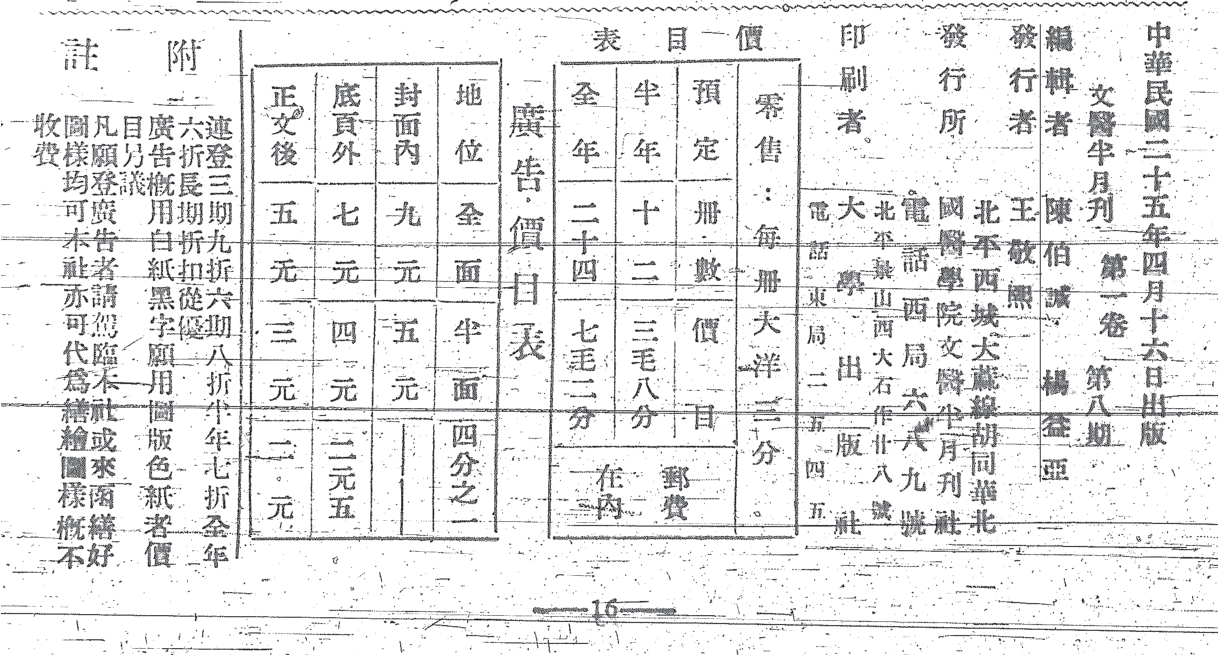 中華民國二十五年四月十六日出版
文醫半月刊 第一卷 第八期
編輯者 陳伯誠 楊益亞
發行者 王敬熙
發行所 北平西城大麻線胡同華北
國醫學院文醫半月刊社
電話西局六八九號
印刷者 北平景山西大石作廿八號
大學出版社
電話東局二五四五
價目表
零售：每冊大洋三分。
預定 冊數 價目
半年 十二 三毛八分
全年 二十四 七毛二分
郵費
在內
廣告價目表
地位 全面 半面 四分之一
封面內 九元 五元
底頁外 七元 四元 二元五
正文後 五元 三元 二元
附註
連登三期九折六期八折半年七折全年
六折長期折扣從優
廣告概用白紙黑字願用圖版色紙者價
目另議
凡願登廣告者請駕臨本社或來函繕好
圖樣均可本社亦可代爲繕繪圖樣概不
收費
16